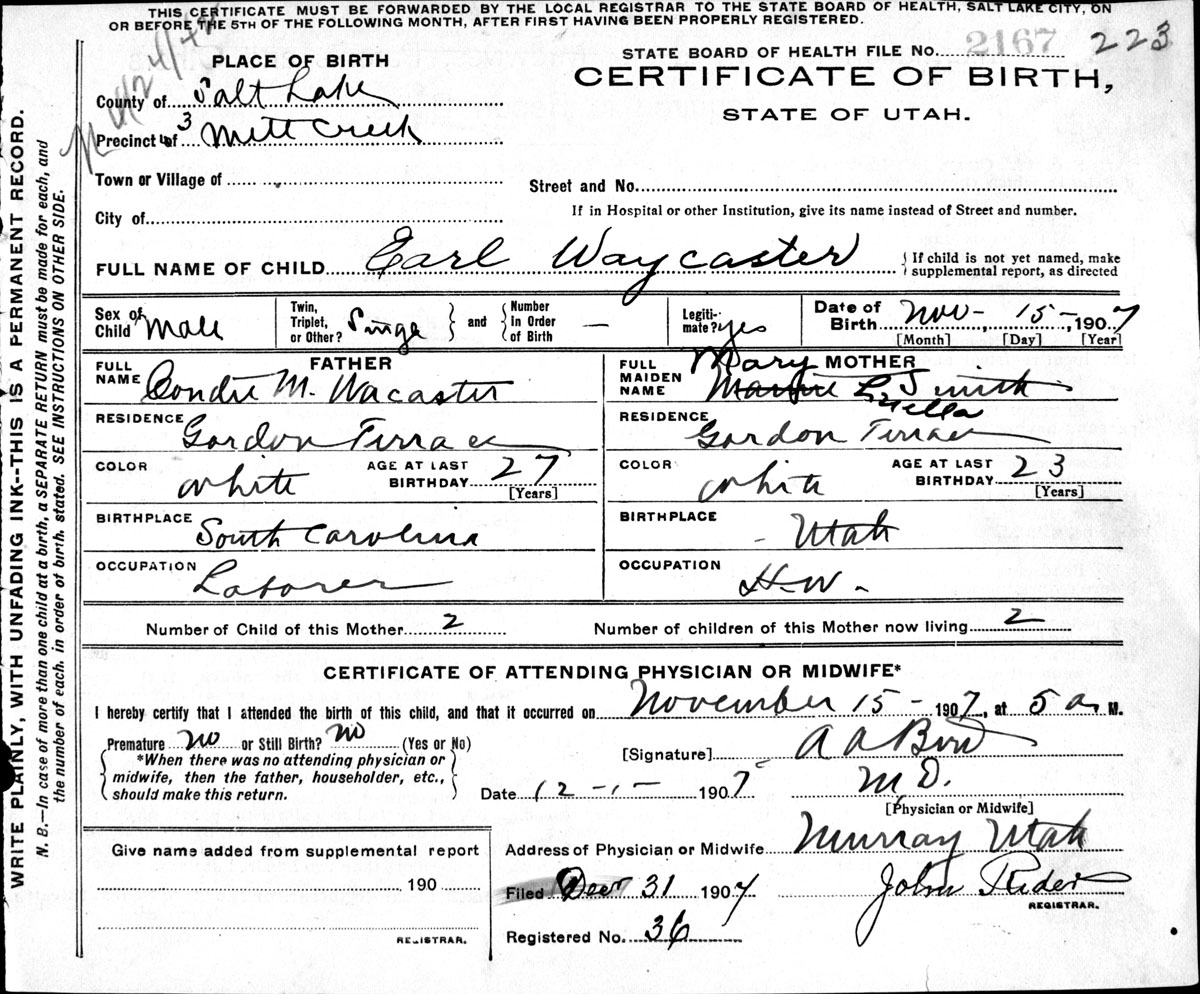 THIS CERTIFICATE MUST BE FORWARDED BY THE LOCAL REGISTRAR TO THE STATE BOARD OF HEALTH, SALT LAKE CITY, ON
OR BEFORE THE 5TH OF THE FOLLOWING MONTH, AFTER FIRST HAVING BEEN PROPERLY REGISTERED.
STATE BOARD OF HEALTH FILE NO. 2167 223
PLACE OF BIRTH
CERTIFICATE OF BIRTH,
STATE OF UTAH.
County of Salt Lake
Precinct of 3 Mill Creek
Town or Village of
Street and No.
City of
If in Hospital or other Institution, give its name instead of Street and number.
FULL NAME OF CHILD Earl Waycaster
{ If child is not yet named, make
supplemental report, as directed
Sex of Child Male
Twin, Triplet, or Other? Singe } and { Number In Order of Birth —
Legiti-mate? yes
Date of Birth Nov - 15 -, 1907
[Month] [Day] [Year]
FATHER
FULL NAME Condie M. Wacaster
RESIDENCE Gordon Terrace
COLOR White AGE AT LAST BIRTHDAY 27
[Years]
BIRTHPLACE South Carolina
OCCUPATION Laborer
MOTHER
FULL MAIDEN NAME Mary L Smith
Luella
RESIDENCE Gordon Terrace
COLOR White AGE AT LAST BIRTHDAY 23
[Years]
BIRTHPLACE - Utah
OCCUPATION H-W.
Number of Child of this Mother 2 Number of children of this Mother now living 2
CERTIFICATE OF ATTENDING PHYSICIAN OR MIDWIFE*
I hereby certify that I attended the birth of this child, and that it occurred on November 15 - 1907, at 5 a. M.
Premature no or Still Birth? no (Yes or No)
{ *When there was no attending physician or
midwife, then the father, householder, etc.,
should make this return. }
[Signature] A A Bird
M D.
Date 12 - 1 - 1907
[Physician or Midwife]
Address of Physician or Midwife Murray Utah
Give name added from supplemental report
190
REGISTRAR.
Filed Dec 31 1907 John Rider
REGISTRAR.
Registered No. 36
WRITE PLAINLY, WITH UNFADING INK--THIS IS A PERMANENT RECORD.
N. B.—In case of more than one child at a birth, a SEPARATE RETURN must be made for each, and
the number of each, in order of birth, stated. SEE INSTRUCTIONS ON OTHER SIDE.